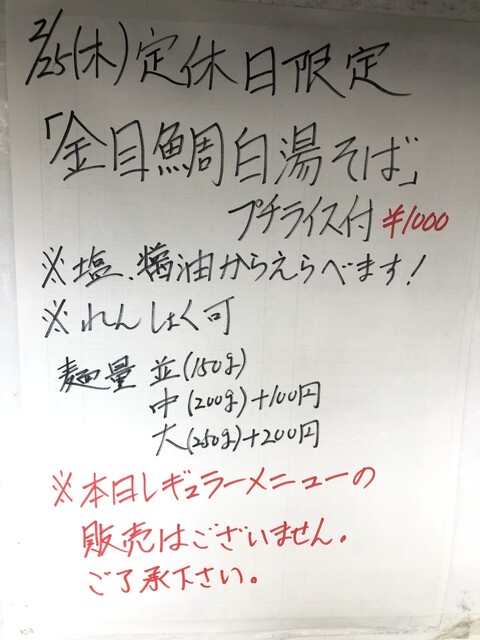 2/25(木)定休日限定
「金目鯛白湯そば」
プチライス付 ¥1000
※塩、醤油からえらべます!
※れんしょく可
麺量 並(150g)
中(200g)+100円
大(250g)+200円
※本日レギュラーメニューの
販売はございません。
ご了承下さい。